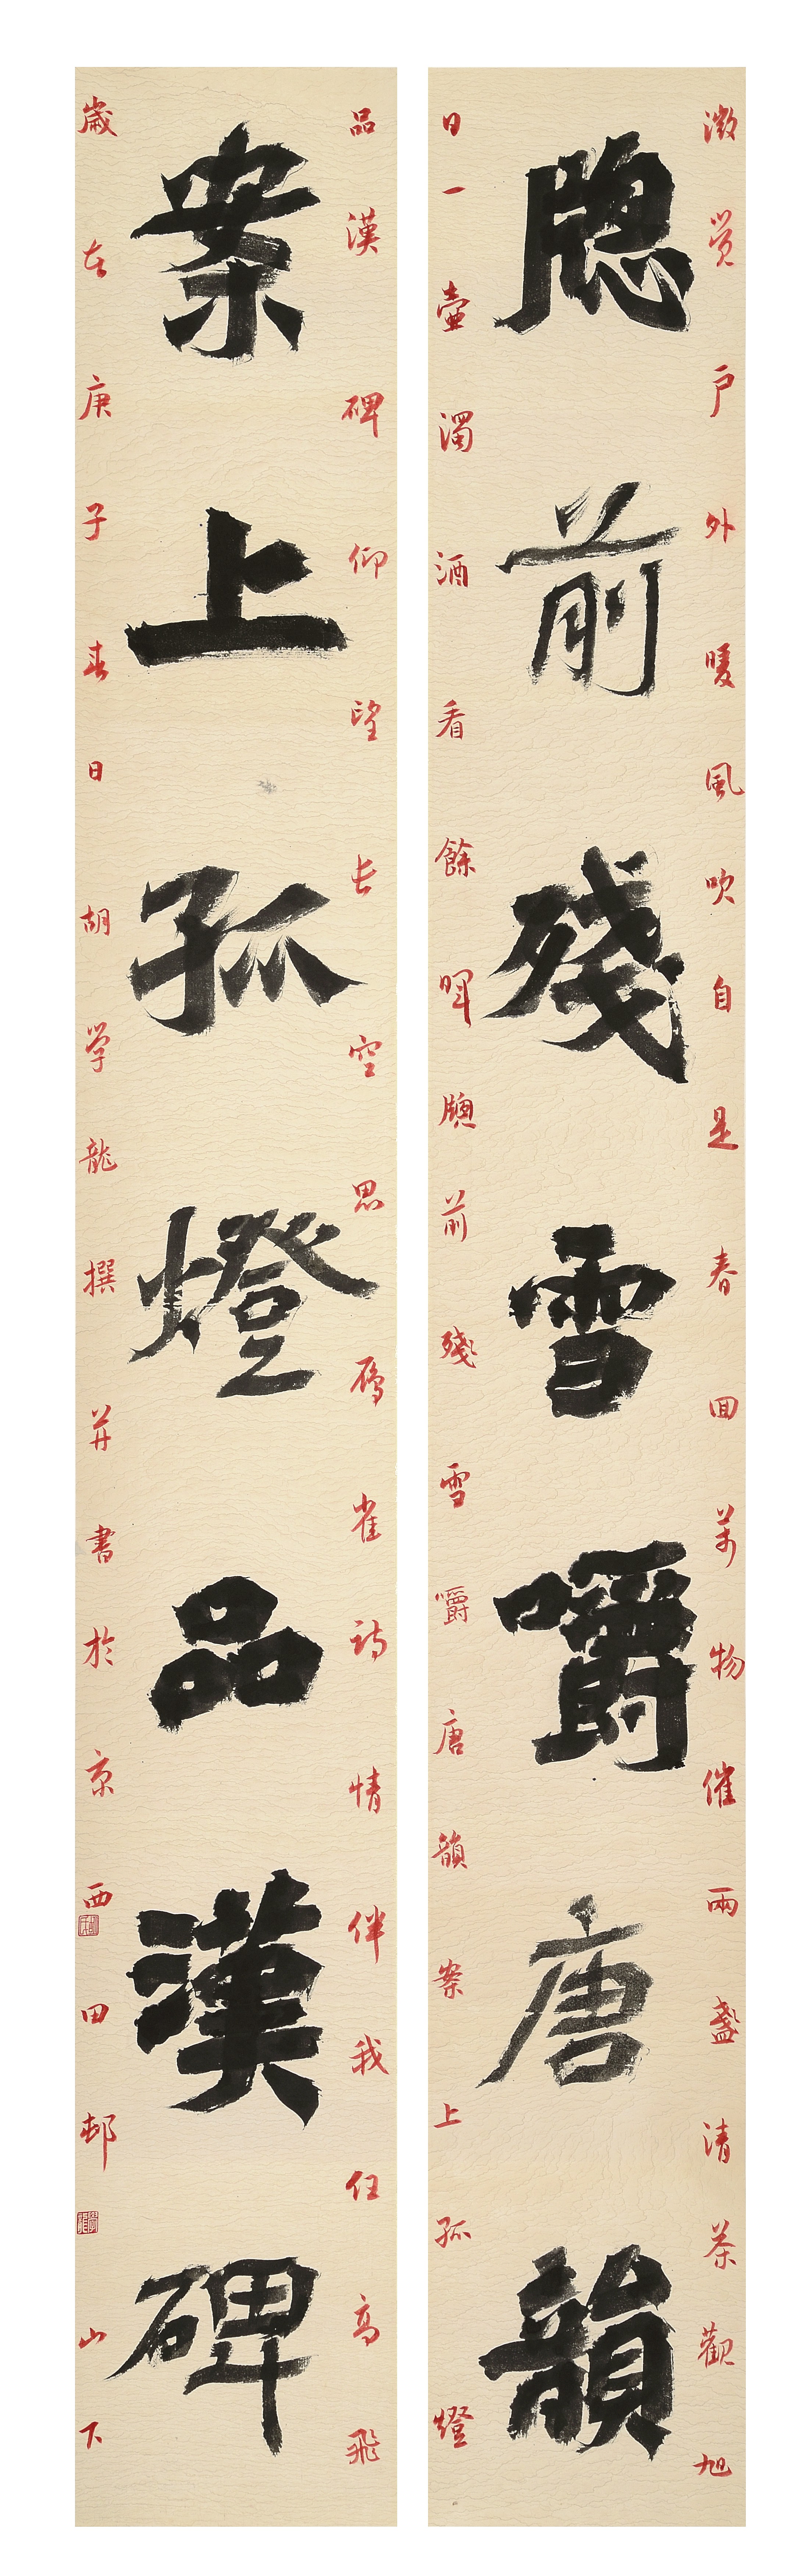 微觉户外暖風吹自是春回萬物催兩盞清茶觀旭
牕前殘雪嚼唐韻
日一壺濁酒看餘暉牕前殘雪嚼唐韻案上孤燈
品漢碑仰望长空思雁雀诗情伴我任高飛
案上孤燈品漢碑
歲在庚子春日胡学龍撰并書於京西田邨山下